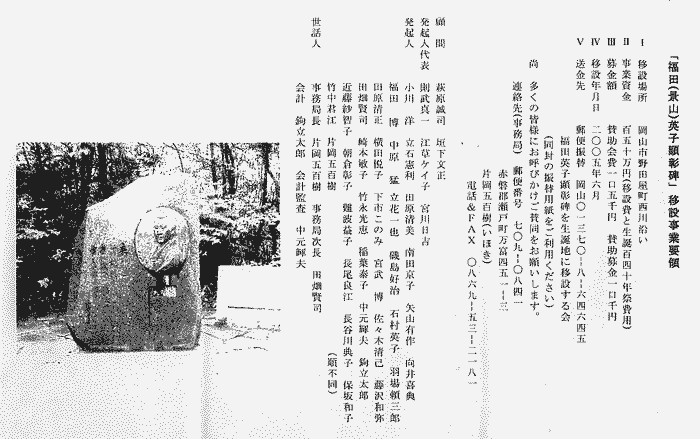 「福田(景山)英子顕彰碑」移設事業要領
Ⅰ 移設場所 岡山市野田屋町西川沿い
Ⅱ 事業資金 百五十万円(移設費と生誕百四十年祭費用)
Ⅲ 募金額 賛助会費一口五千円 賛助募金一口千円
Ⅳ 移設年月日 二〇〇五年六月
Ⅴ 送金先 郵便振替 岡山〇一三七〇ー八ー六四六四五
福田英子顕彰碑を生誕地に移設する会
(同封の振替用紙をご利用ください)
尚 多くの皆様にお呼びかけご賛同をお願いします。
連絡先(事務局) 郵便番号 七〇九ー〇八四一
赤磐郡瀬戸町万富四五一ー三
片岡五百樹(いほき)
電話&FAX 〇八六九ー五三ー二一八一
顧問 萩原誠司 垣下文正
発起人代表 則武真一 江草ケイ子 宮川日吉
発起人 小川 洋 立石憲利 田原清美 南田京子 矢山有作 向井喜典
福田 博 中原 猛 立花一也 磯島好治 石村英子 羽場頼三郎
田原清正 横田悦子 下市このみ 宮武 博 佐々木清己 藤沢和弥
田畑賢司 崎本敏子 竹永光恵 稲葉泰子 中元輝夫 鉤立太郎
近藤紗智子 朝倉彰子 難波益子 長尾良江 長谷川典子 保坂和子
竹中君江 片岡五百樹 (順不同)
世話人 事務局長 片岡五百樹 事務局次長 田畑賢司
会計 鉤立太郎 会計監査 中元輝夫